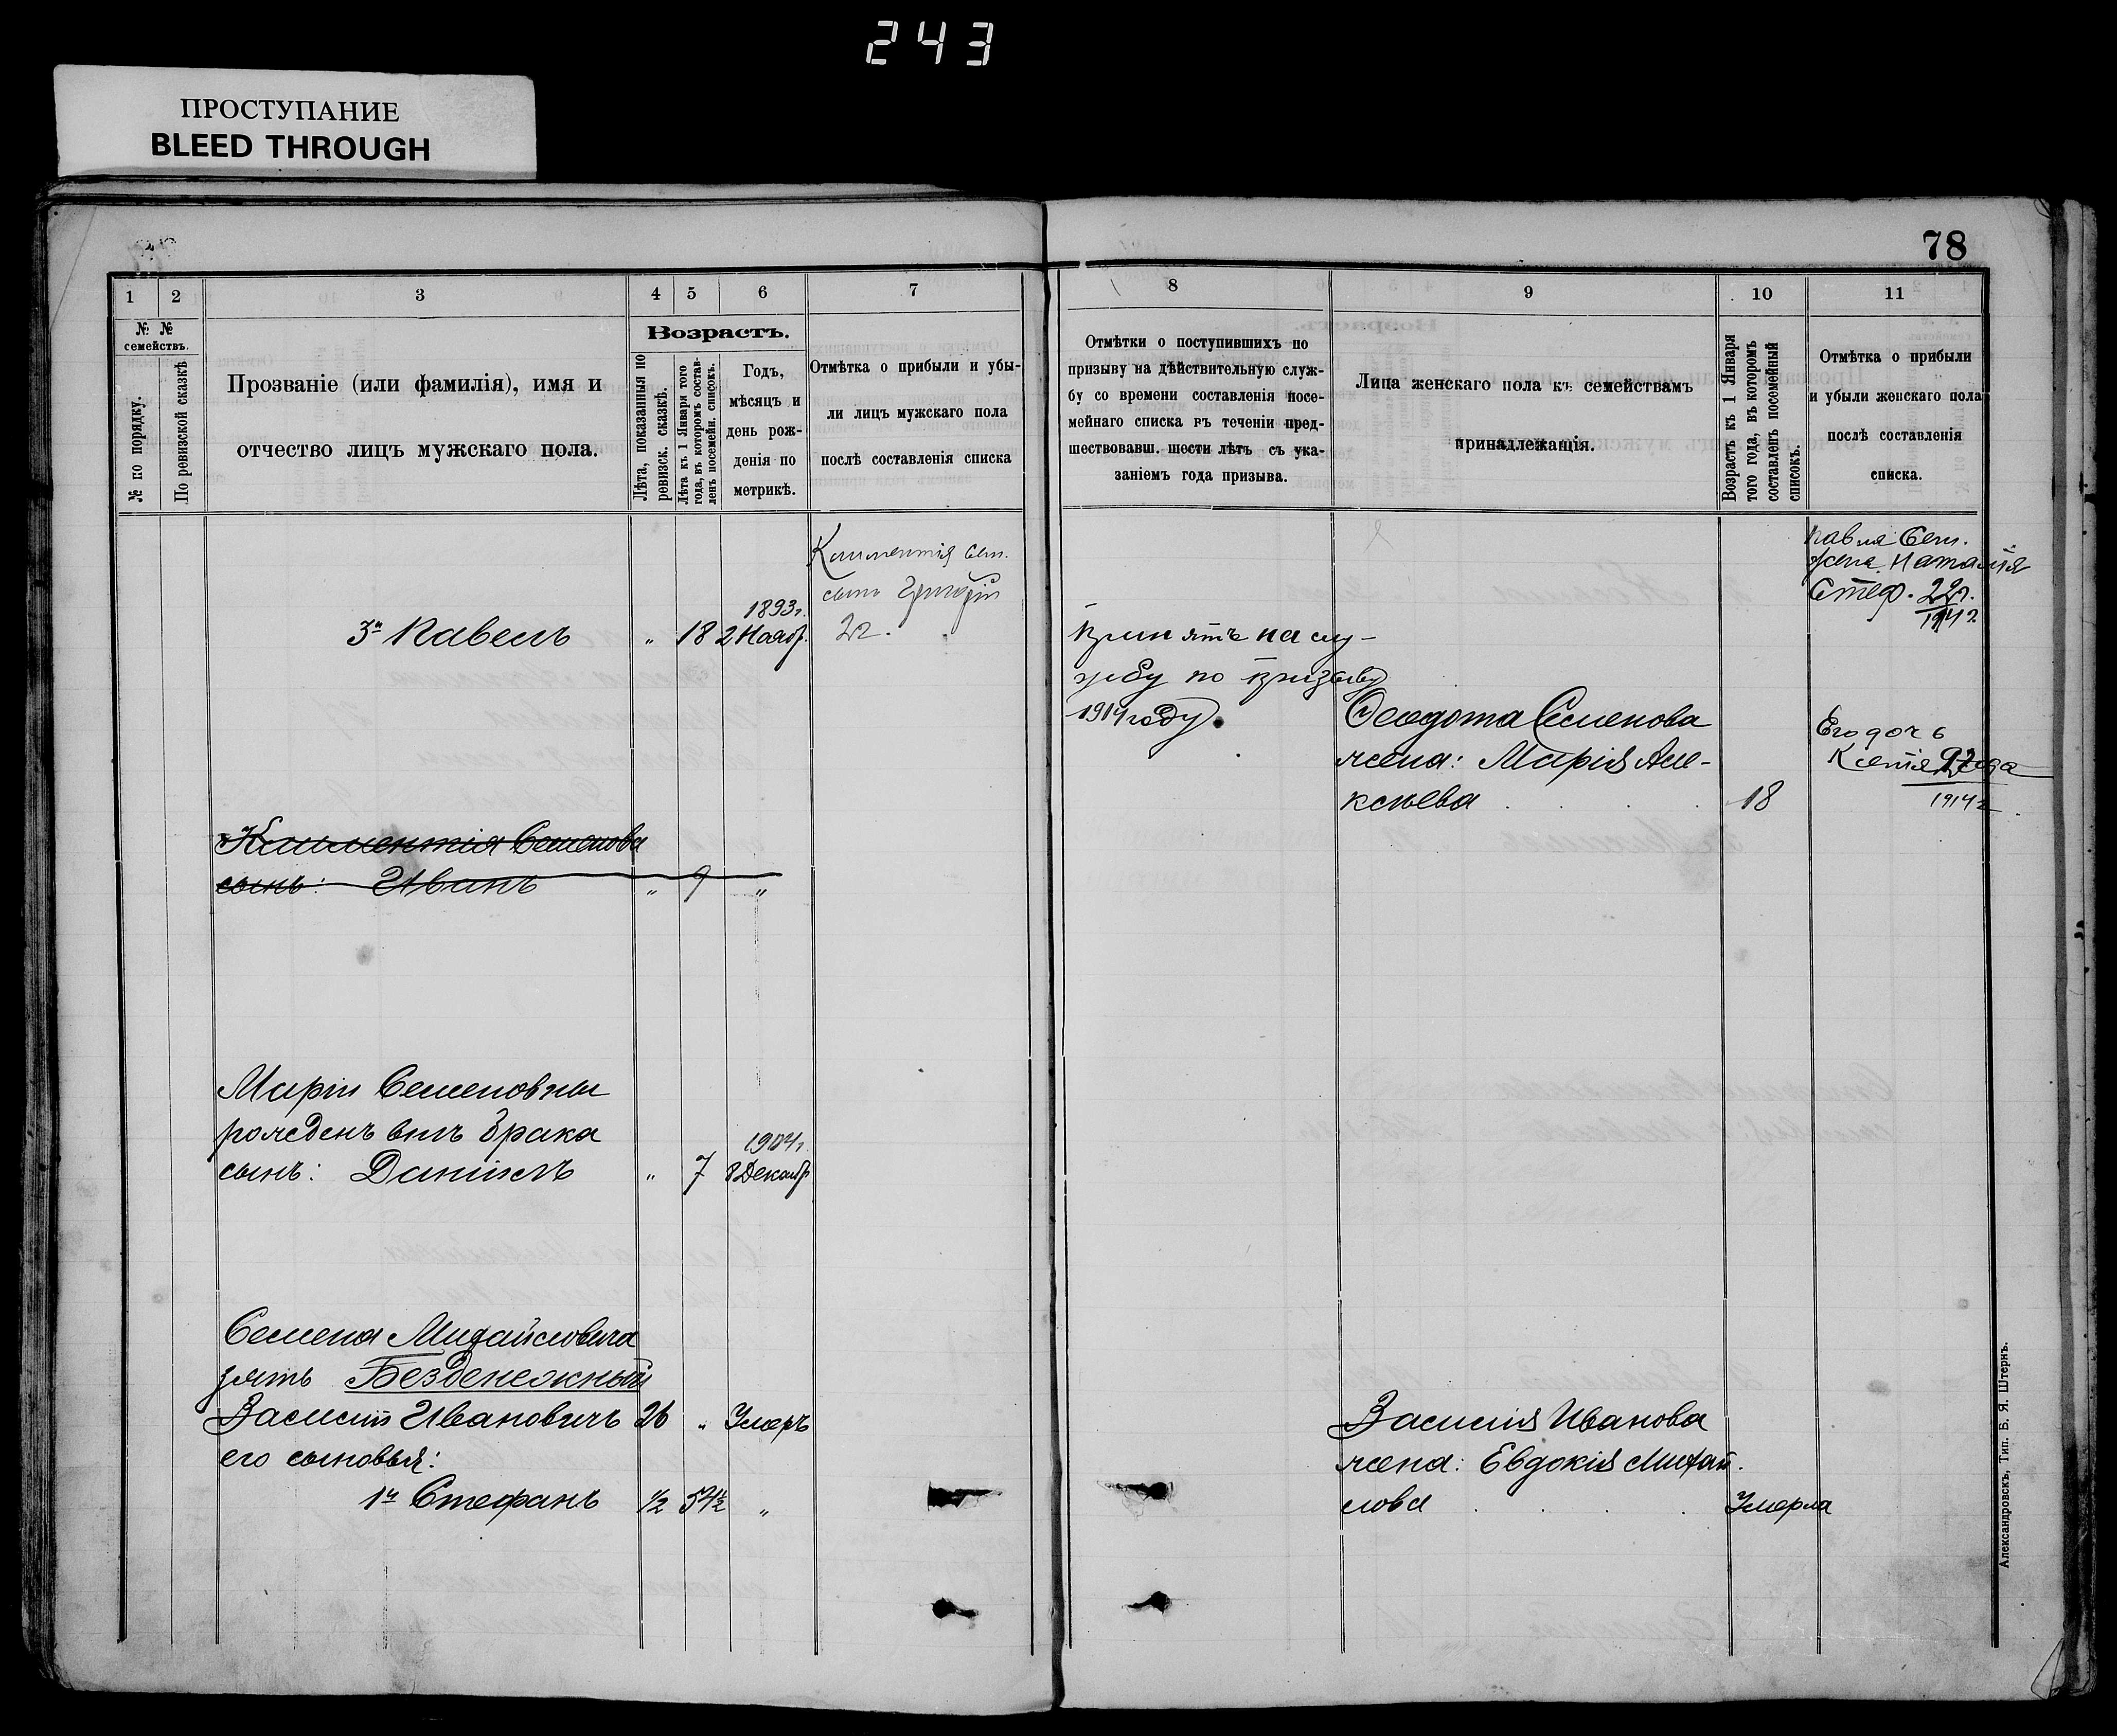 243
ПРОСТУПАНИЕ
BLEED THROUGH
78
1 2 3 4 5 6 7 8 9 10 11
№ №
семействъ.
№ по порядку.
По ревизской сказкѣ
Прозваніе (или фамилія), имя и
отчество лицъ мужскаго пола.
Возрастъ.
Лѣта, показанныя по
ревизск. сказкѣ.
Лѣта къ 1 Января того
года, въ которомъ состав-
ленъ посемейн. списокъ.
Годъ,
мѣсяцъ и
день рож-
денія по
метрикѣ.
Отмѣтка о прибыли и убы-
ли лицъ мужскаго пола
послѣ составленія списка
Отмѣтки о поступившихъ по
призыву на дѣйствительную служ-
бу со времени составленія посе-
мейнаго списка въ теченіи пред-
шествовавш. шести лѣтъ съ ука-
заніемъ года призыва.
Лица женскаго пола къ семействамъ
принадлежащія.
Возрастъ къ 1 Января
того года, въ которомъ
составленъ посемейный
списокъ.
Отмѣтка о прибыли
и убыли женскаго пола
послѣ составленія
списка.
Климентія Сем.
сынъ Григорій
2г.
1893г.
3й Павелъ " 18 2 Наябр.
Принятъ на слу-
жбу по призыву
1914 году.
Павла Сем.
жена Наталія
Стеф. 22г.
1914 г
Феодота Семенова
жена: Марія Але-
ксѣева 18
Его дочь
1914 г
Климентія Семенова
сынъ: Иванъ " 9 "
Маріи Семеновны
рожденъ внѣ брака
1904г.
сынъ: Даніилъ " 7 8 Декабр
Семена Михайловича
зять Безденежный
Василій Ивановичъ 26 " Умеръ
его сыновья:
1й Стефанъ ½ 54½ "
Василія Иванова
жена: Евдокія Михай-
лова Умерла
Александровскъ, Тип. Б. Я. Штернъ.